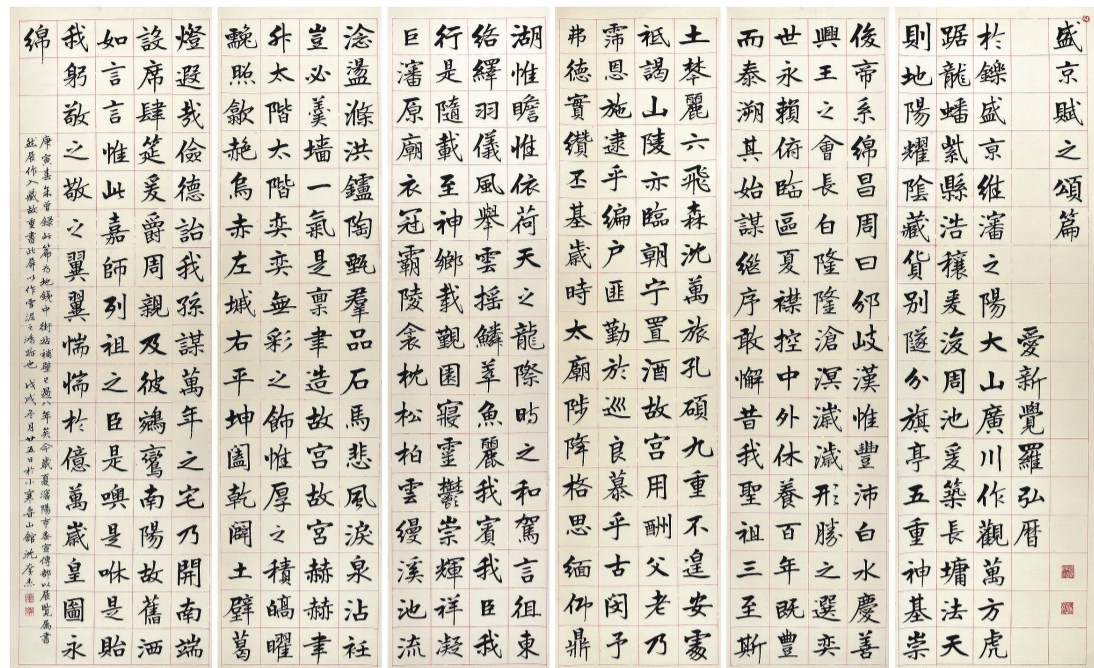 盛京賦之頌篇
愛新覺羅弘曆
於鑠盛京維瀋之陽大山廣川作觀萬方虎
踞龍蟠紫縣浩穰爰浚周池爰築長墉法天
則地陽耀陰藏貨別隧分旗亭五重神基崇
俊帝系綿昌周曰邠岐漢惟豐沛白水慶善
興王之會長白隆隆滄溟濊濊形勝之選奕
世永賴俯臨區夏襟控中外休養百年既豐
而泰溯其始謀繼序敢懈昔我聖祖三至斯
土棽麗六飛森沈萬旅孔碩九重不遑安處
祗謁山陵亦臨朝宁置酒故宮用酬父老乃
霈恩施逮乎編戶匪勤於巡良慕乎古閔予
弗德實纘丕基歲時太廟陟降格思緬仰鼎
湖惟瞻惟依荷天之龍際時之和駕言徂東
絡繹羽儀風舉雲搖鱗萃魚麗我賓我臣我
行是隨載至神鄉載覲園寢靈鬱崇輝祥凝
巨瀋原廟衣冠霸陵衾枕松柏雲縵溪池流
淰盪滌洪鑪陶甄羣品石馬悲風淚泉沾衽
豈必羹墻一氣是稟聿造故宮故宮赫赫聿
升太階太階奕奕無彩之飾惟厚之積皜曜
照歙赩烏赤左墄右平坤闔乾闢土壁葛
燈遐哉儉德詒我孫謀萬年之宅乃開南端
設席肆筵爰爵周親及彼鵷鸞南陽故舊洒
如言言惟此嘉師列祖之臣是噢是咻是貽
我躬敬之敬之翼翼惴惴於億萬歲皇圖永
綿
庚寅年曾錄此篇為地鐵中街站補壁已過八年矣今歲夏瀋陽市委宣傳部以展覽屬書
然展作入藏故重書此屏以作雪泥之鴻跡也戊戌冬月廿五日於小寒山館沈